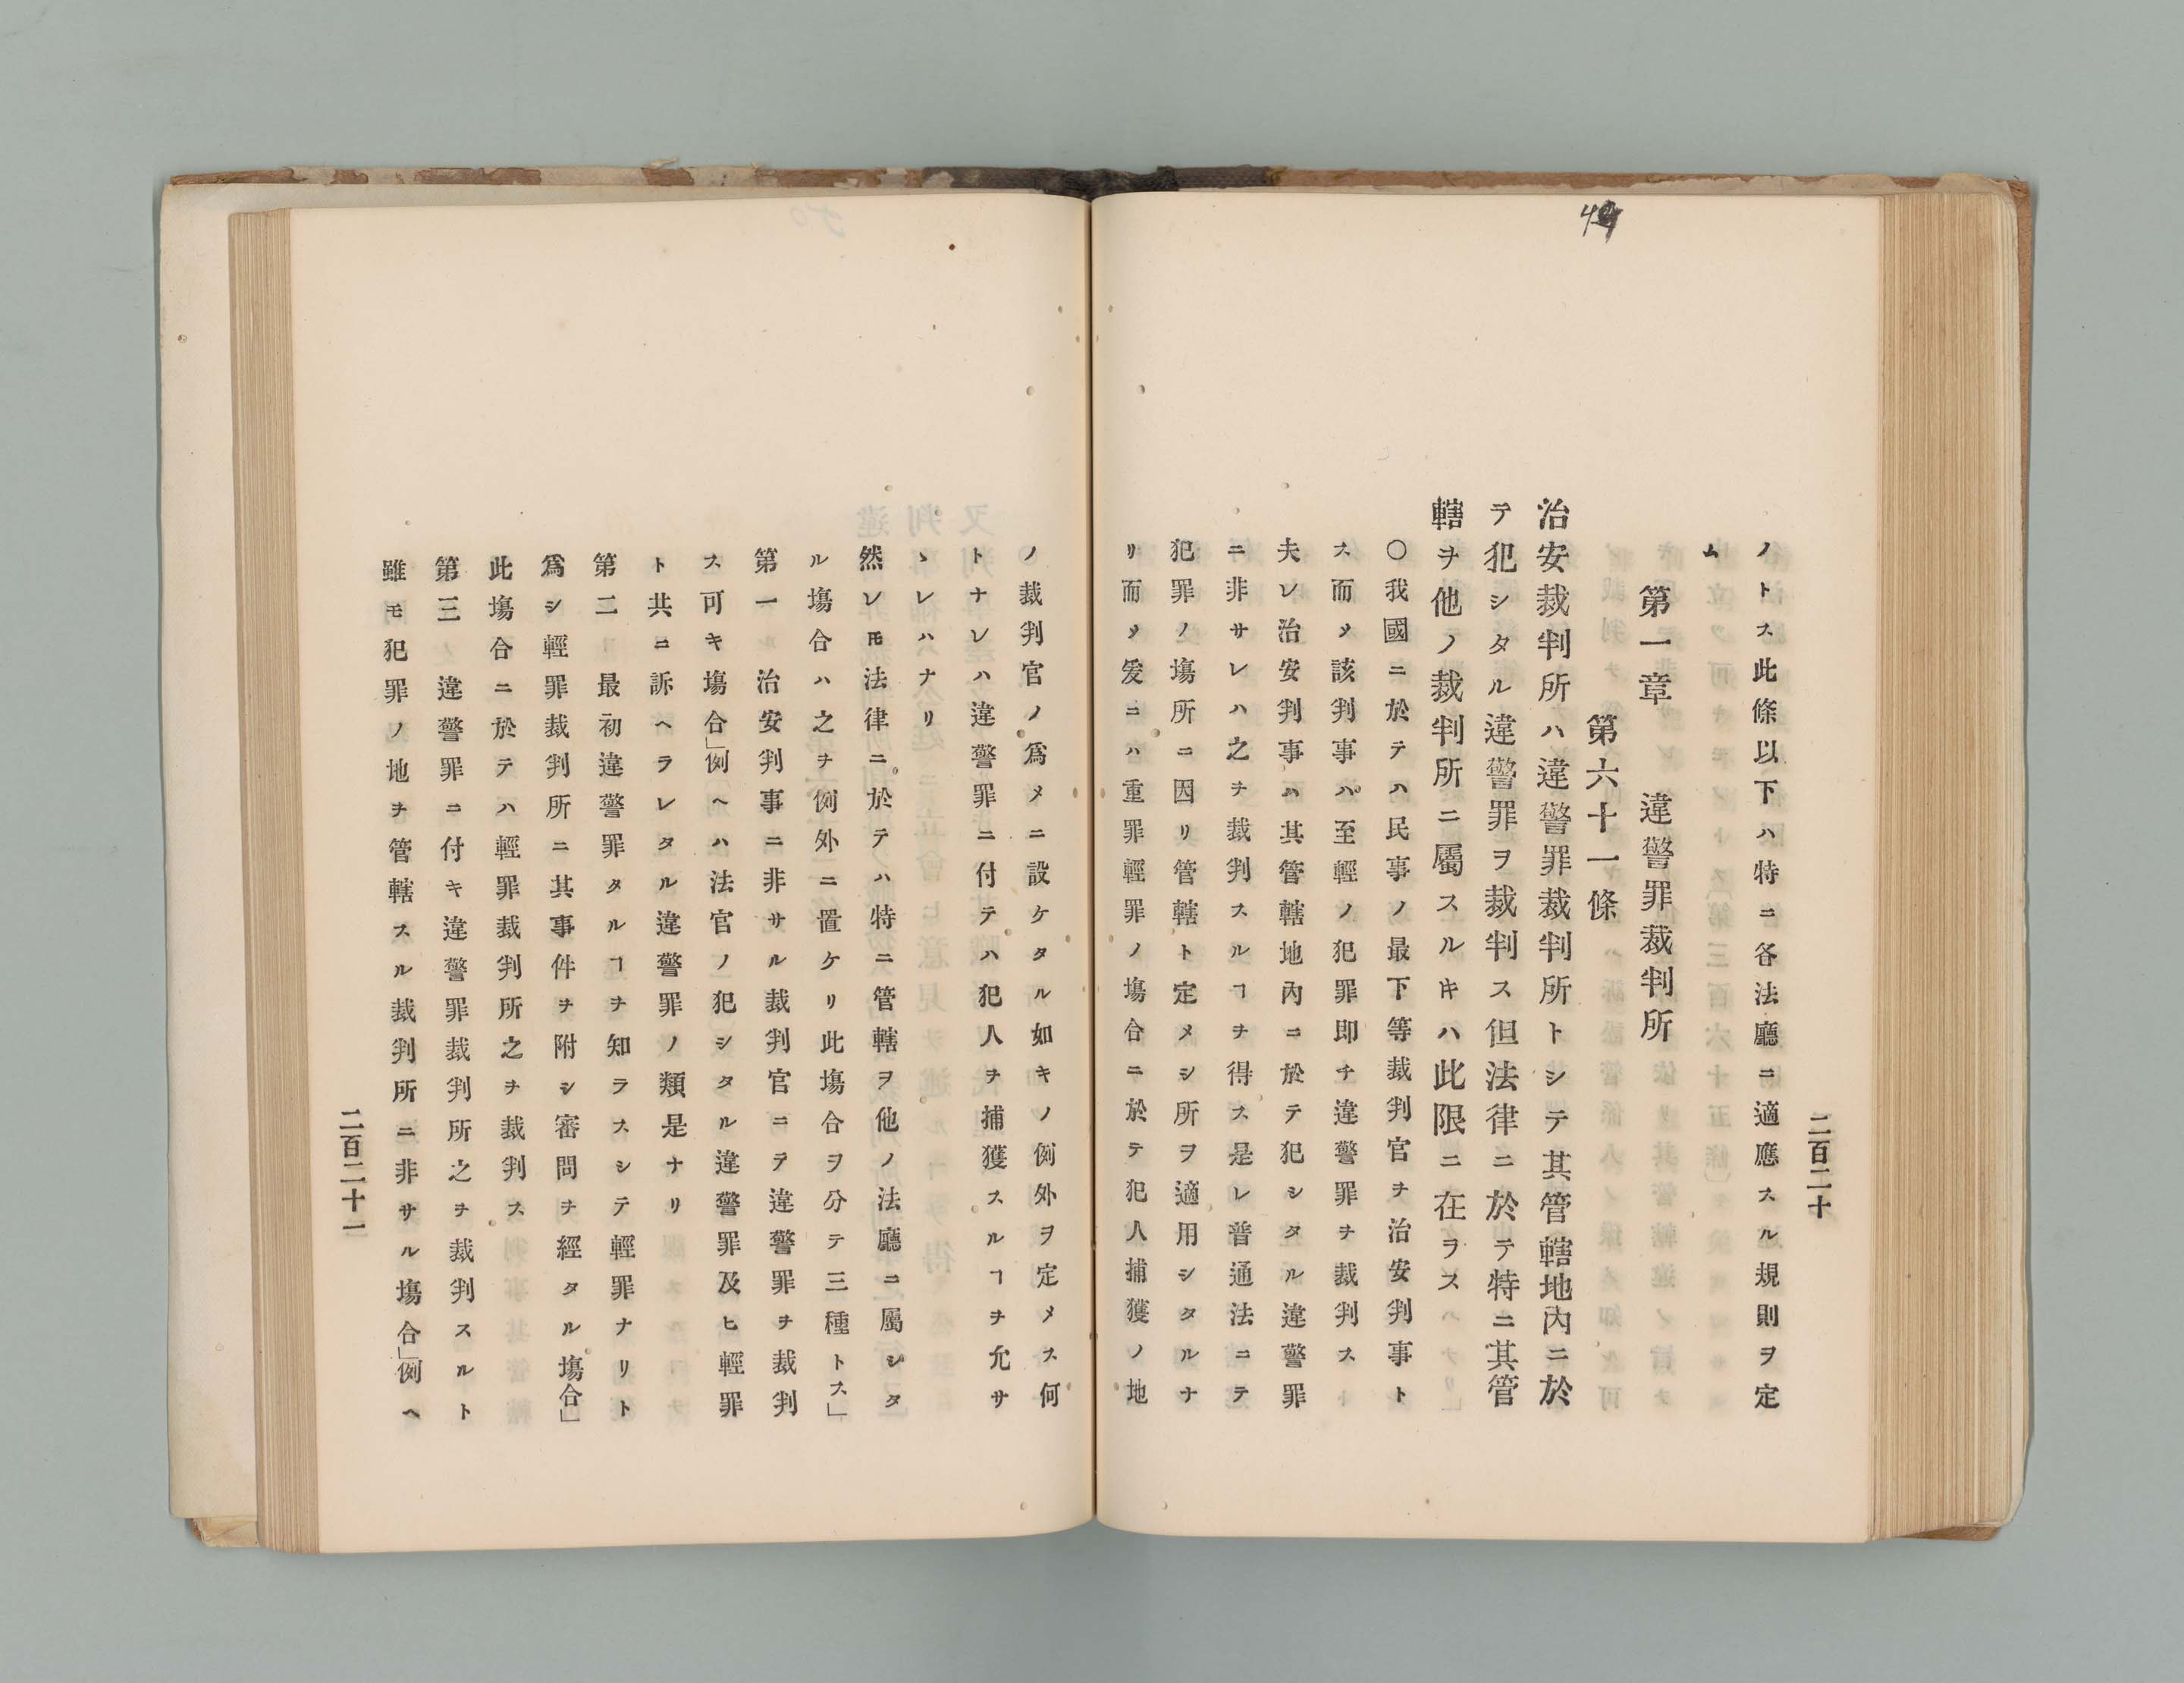 49
二百二十
ノトス此條以下ハ特ニ各法廳ニ適應スル規則ヲ定
ム
第一章　違警罪裁判所
第六十一條
治安裁判所ハ違警罪裁判所トシテ其管轄地內ニ於
テ犯シタル違警罪ヲ裁判ス但法律ニ於テ特ニ其管
轄ヲ他ノ裁判所ニ屬スルキハ此限ニ在ラス
〇我國ニ於テハ民事ノ最下等裁判官ヲ治安判事ト
ス而〆該判事ハ至輕ノ犯罪即チ違警罪ヲ裁判スト
夫レ治安判事ハ其管轄地內ニ於テ犯シタル違警罪
ニ非サレハ之ヲ裁判スルヿヲ得ス是レ普通法ニテ
犯罪ノ塲所ニ因リ管轄ト定メシ所ヲ適用シタルナ
リ而〆爰ニハ重罪輕罪ノ塲合ニ於テ犯人捕獲ノ地
ノ裁判官ノ爲メニ設ケタル如キノ例外ヲ定メス何
トナレハ違警罪ニ付テハ犯人ヲ捕獲スルヿヲ允サ
ヽレハナリ
然レ𪜈法律ニ於テハ特ニ管轄ヲ他ノ法廳ニ屬シタ
ル塲合ハ之ヲ例外ニ置ケリ此塲合ヲ分テ三種トス」
第一　治安判事ニ非サル裁判官ニテ違警罪ヲ裁判
ス可キ塲合」例ヘハ法官ノ犯シタル違警罪及ヒ輕罪
ト共ニ訴ヘラレタル違警罪ノ類是ナリ
第二　最初違警罪タルヿヲ知ラスシテ輕罪ナリト
爲シ輕罪裁判所ニ其事件ヲ附シ審問ヲ經タル塲合」
此塲合ニ於テハ輕罪裁判所之ヲ裁判ス
第三　違警罪ニ付キ違警罪裁判所之ヲ裁判スルト
雖モ犯罪ノ地ヲ管轄スル裁判所ニ非サル塲合」例ヘ
二百二十一